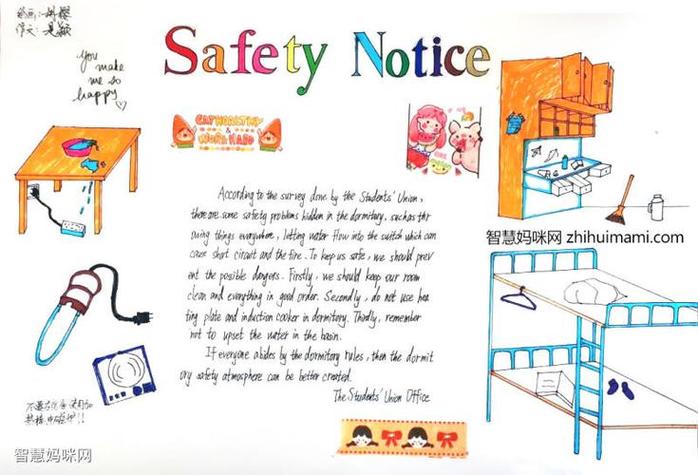 绘画:
作文:
You
make
me so
happy
Safety Notice
EAT HEALTHY
&
WORK HARD
According to the survey done by the Students' Union,
there are some safety problems hidden in the dormitory, such as thr
owing things everywhere, letting water flow into the switch which can
cause short circuit and the fire. To keep us safe, we should prev
ent the possible dangers. Firstly, we should keep our room
clean and everything in good order. Secondly, do not use hea
ting plate and induction cooker in dormitory. Thirdly, remember
not to upset the water in the basin.
If everyone abides by the dormitory rules, then the dormit
ory safety atmosphere can be better created.
The Students' Union Office
智慧妈咪网 zhihuimami.com
不要在宿舍使用加
热棒,电磁炉!!
智慧妈咪网